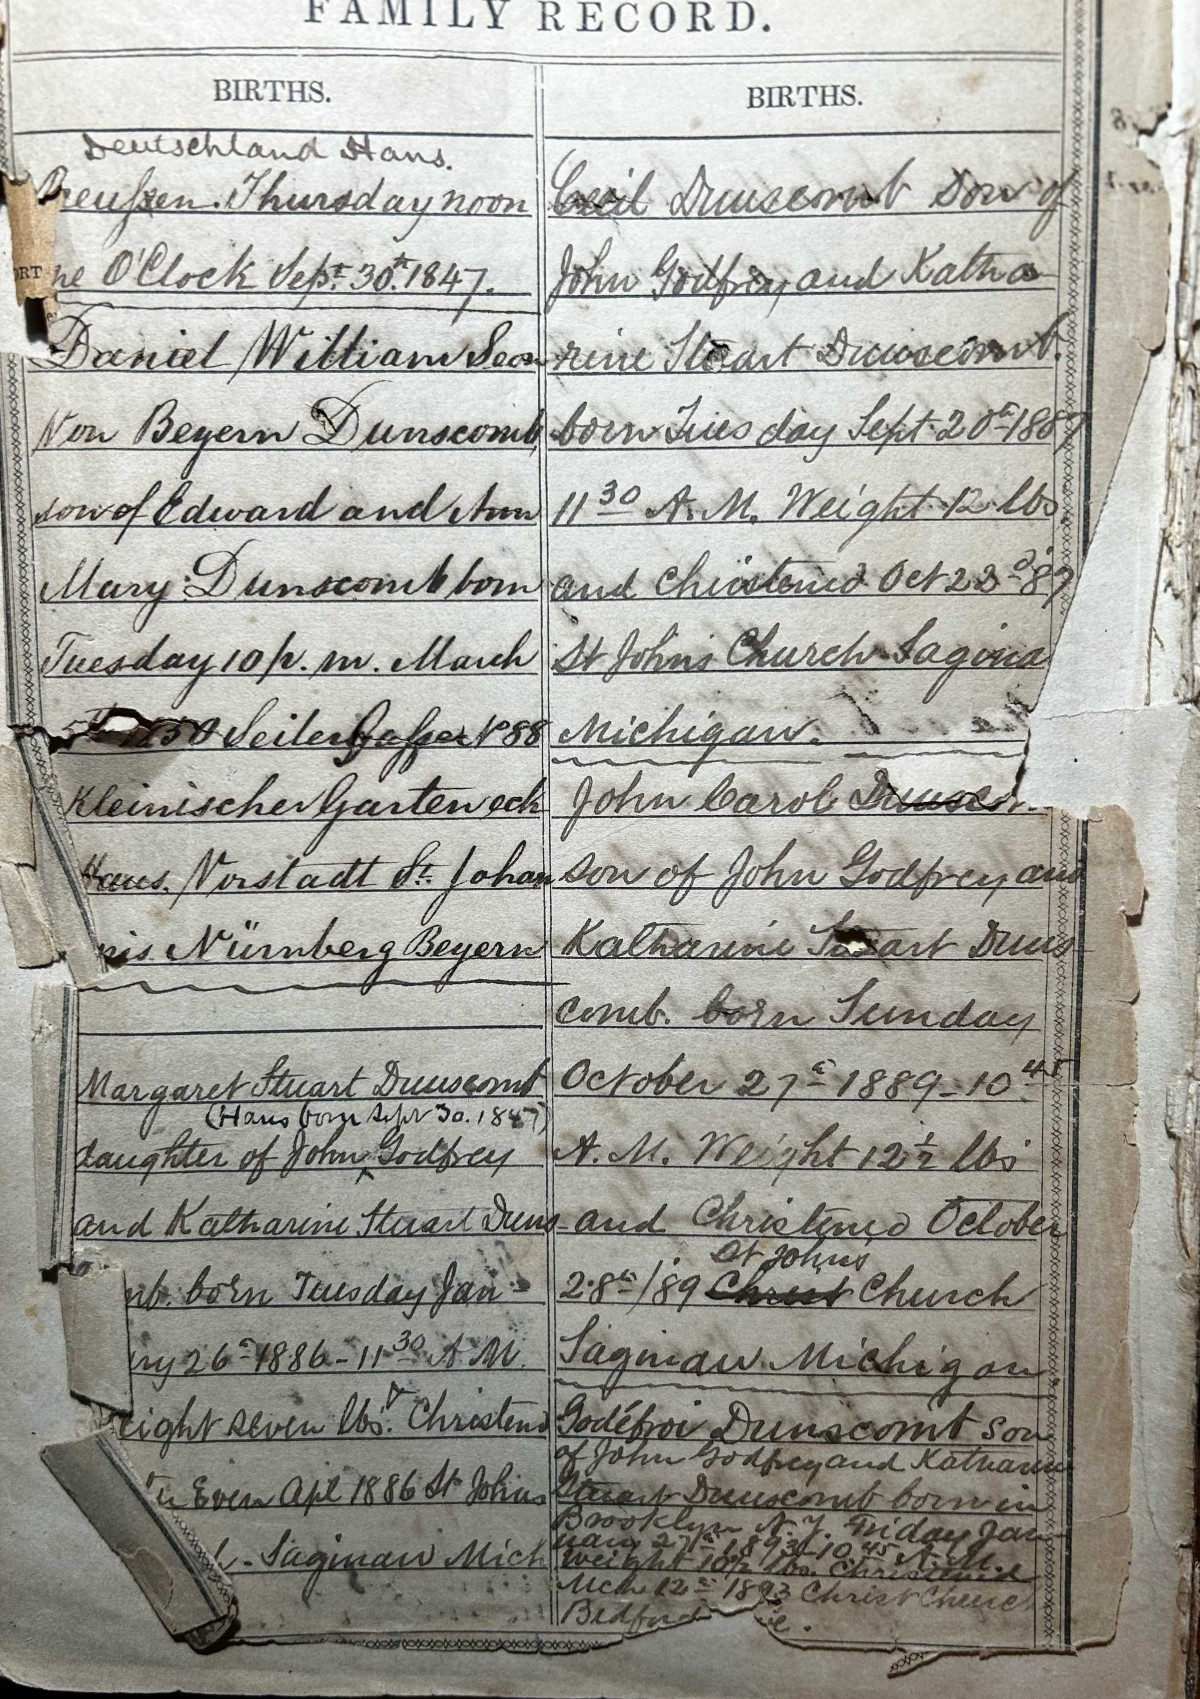 FAMILY RECORD.
BIRTHS.
Deutschland Hans.
Preussen. Thursday noon
ne O'Clock Sept. 30th. 1847.
Daniel William Leon
Von Beyern Dunscomb
son of Edward and Ann
Mary Dunscomb born
Tuesday 10 p. m. March
1850 Seiler Gasse No 88
Kleinischer Garten eck
Haus. Vorstadt St. Johan
nis. Nürnberg Beyern
Margaret Stuart Dunscomb
(Hans born Sept 30. 1847)
daughter of John ^ Godfrey
and Katharine Stuart Duns-
mb. born Tuesday Jan-
ry 26th 1886 - 11 30 A M.
eight seven lbs. Christend
Even Apl 1886 St Johns
Saginaw Mich
BIRTHS.
Cecil Dunscomb Son of
John Godfrey and Katha
rine Stuart Dunscomb.
born Tuesday Sept. 20th 1887
11 30 A. M. Weight 12 lbs
and Christened Oct 22d '87
St Johns Church Sagina
Michigan.
John Carol Dunscom
son of John Godfrey and
Katharine Stuart Duns
comb. born Sunday
October 27th 1889 - 10 45
A. M. Weight 12 1/2 lbs
and Christened October
St Johns
28th /89 Christ Church
Saginaw Michigan
Godéfroi Dunscomb son
of John Godfrey and Katharine
Stuart Dunscomb born in
Brooklyn N. Y. Friday Jan
uary 27th 1893 - 10 45 A. M.
Weight 10 1/2 lbs. Christened
Mch 12th 1893 Christ Churc
Bedford e.